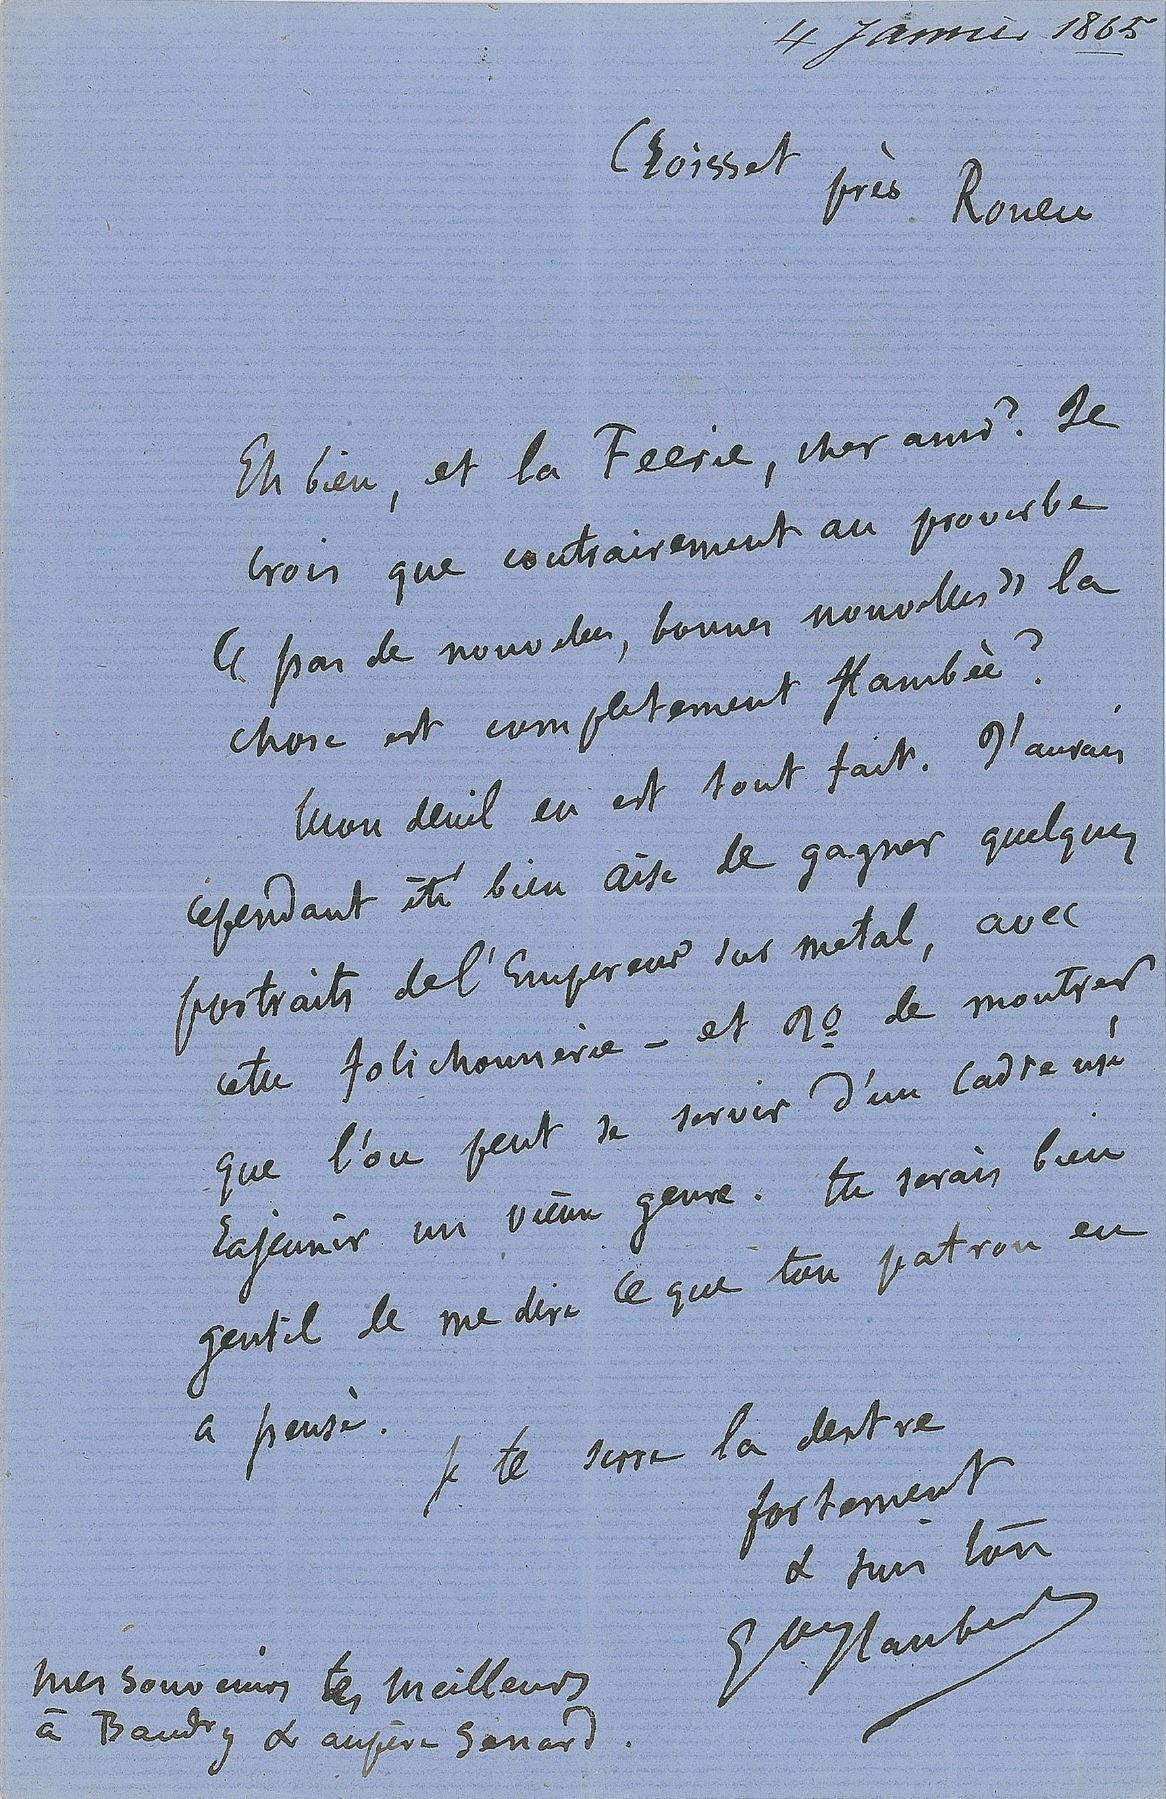 4 Janvier 1865
Croisset près Rouen
Eh bien, et la Féerie, cher ami? Je
crois que contrairement au proverbe
« pas de nouvelles, bonnes nouvelles » la
chose est completement flambée?
Mon deuil en est tout fait. J'aurais
cependant été bien aise de gagner quelques
portraits de l'Empereur sur metal, avec
cette folichonnerie – et 2º de montrer
que l'on peut se servir d'un cadre usé
rajeunir un vieux genre. tu serais bien
gentil de me dire ce que ton patron en
a pensé.
je te serre la dextre
fortement
& suis ton
Gve Flaubert
mes souvenirs les meilleurs
à Baudry & au père Senard.